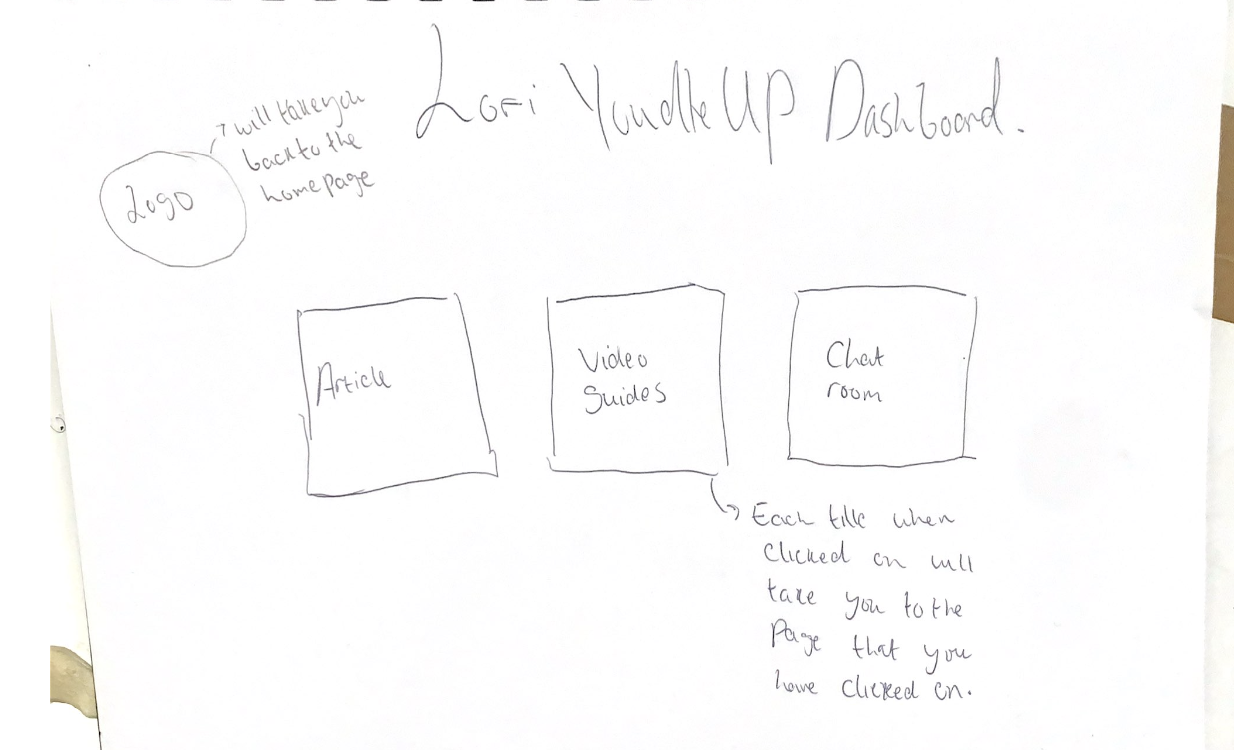 Lofi YoudleUP Dashboard.
will take you
back to the
home page
Logo
Article
Video
Guides
Chat
room
Each title when
Clicked on will
take you to the
Page that you
have clicked on.